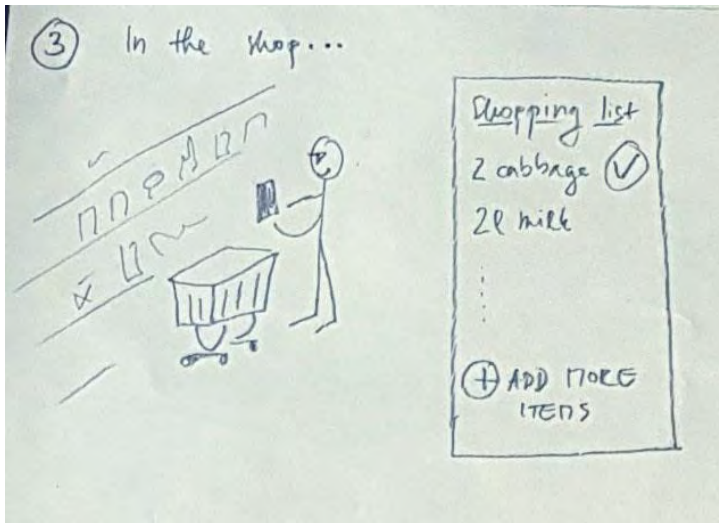 3 In the shop...
Shopping list
2 cabbage
2l milk
ADD MORE
ITEMS